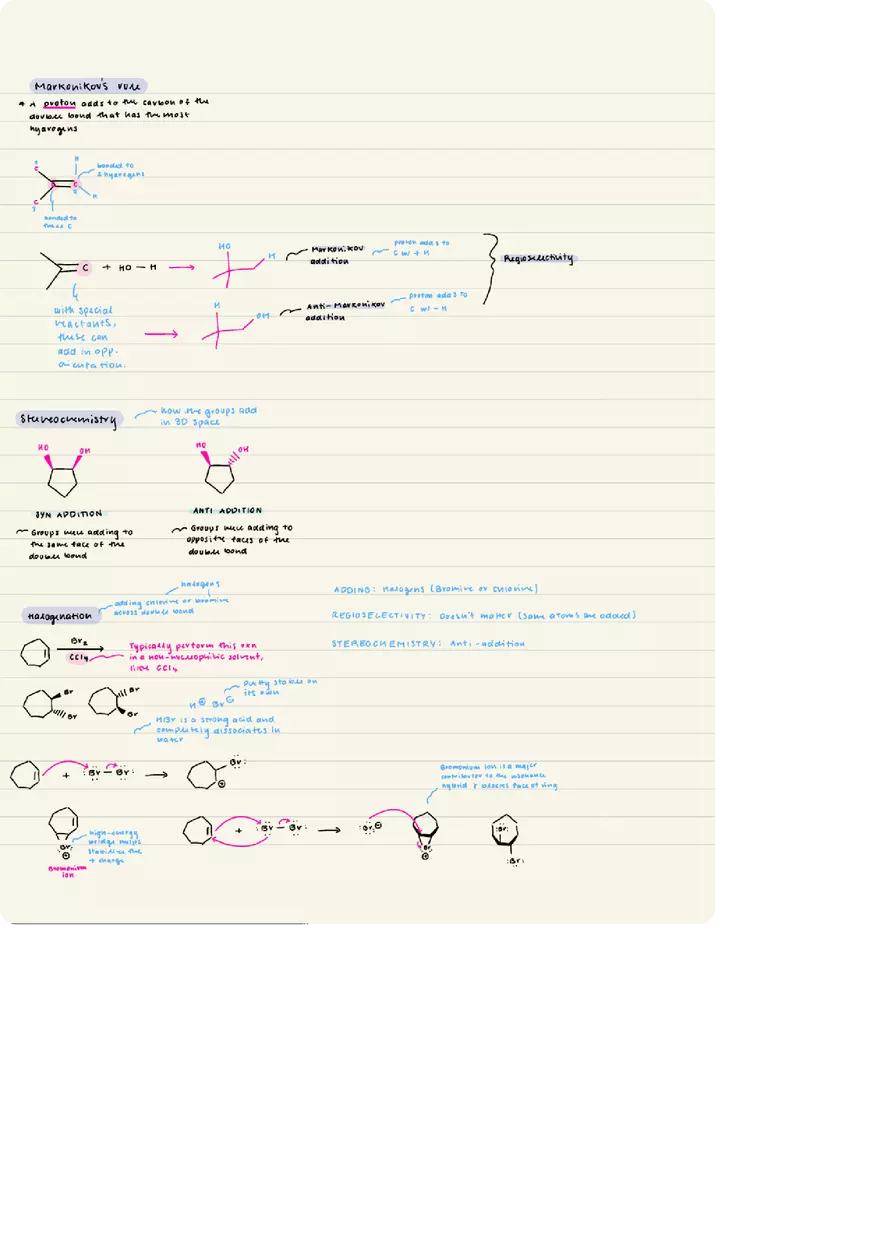 Markonikov's rule
* A proton adds to the carbon of the
double bond that has the most
hydrogens
1
C
H
bonded to
2 hydrogens
C
C
H
C
3
2
bonded to
three C
C + HO — H
HO
H
Markonikov
addition
proton adds to
C w/ + H
Regioselectivity
with special
reactants,
these can
add in opp.
orientation.
H
OH
Anti-Markonikov
addition
proton adds to
C w/ - H
Stereochemistry
how the groups add
in 3D space
HO OH
HO OH
SYN ADDITION
ANTI ADDITION
Groups were adding to
the same face of the
double bond
Groups were adding to
opposite faces of the
double bond
halogens
adding chlorine or bromine
across double bond
Halogenation
ADDING: Halogens (Bromine or chlorine)
REGIOSELECTIVITY: Doesn't matter (same atoms are added)
STEREOCHEMISTRY: Anti-addition
Br2
CCl4
Typically perform this rxn
in a non-nucleophilic solvent,
like CCl4
Br
Br
Br
Br
H⊕ Br⊖
pretty stable on
its own
HBr is a strong acid and
completely dissociates in
water
+ :Br — Br:
Br:
⊕
Bromonium ion is a major
contributor to the resonance
hybrid &
face of ring
:Br:
⊕
Bromonium
ion
high-energy
bridge helps
stabilize the
+ charge
+ :Br — Br:
:Br:⊖
Br:
⊕
:Br:
:Br: